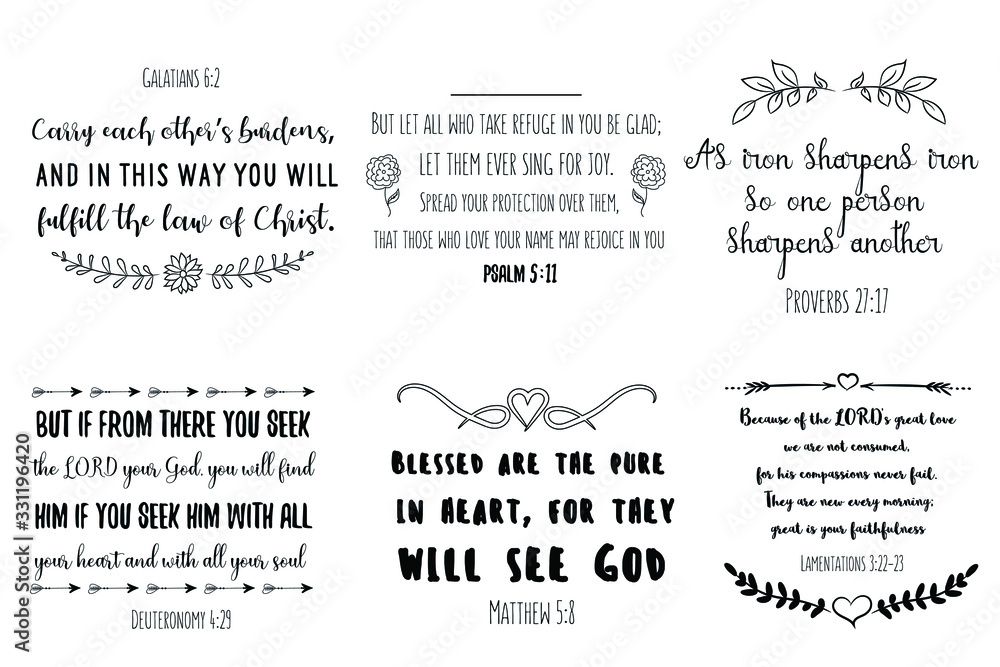 GALATIANS 6:2
Carry each other's burdens,
AND IN THIS WAY YOU WILL
fulfill the law of Christ.
BUT LET ALL WHO TAKE REFUGE IN YOU BE GLAD;
LET THEM EVER SING FOR JOY.
SPREAD YOUR PROTECTION OVER THEM,
THAT THOSE WHO LOVE YOUR NAME MAY REJOICE IN YOU
PSALM 5:11
As iron sharpens iron
so one person
sharpens another
PROVERBS 27:17
BUT IF FROM THERE YOU SEEK
the LORD your God, you will find
HIM IF YOU SEEK HIM WITH ALL
your heart and with all your soul
DEUTERONOMY 4:29
BLESSED ARE THE PURE
IN HEART, FOR THEY
WILL SEE GOD
MATTHEW 5:8
Because of the LORD's great love
we are not consumed,
for his compassions never fail.
They are new every morning;
great is your faithfulness
LAMENTATIONS 3:22-23
Adobe Stock | #331196420